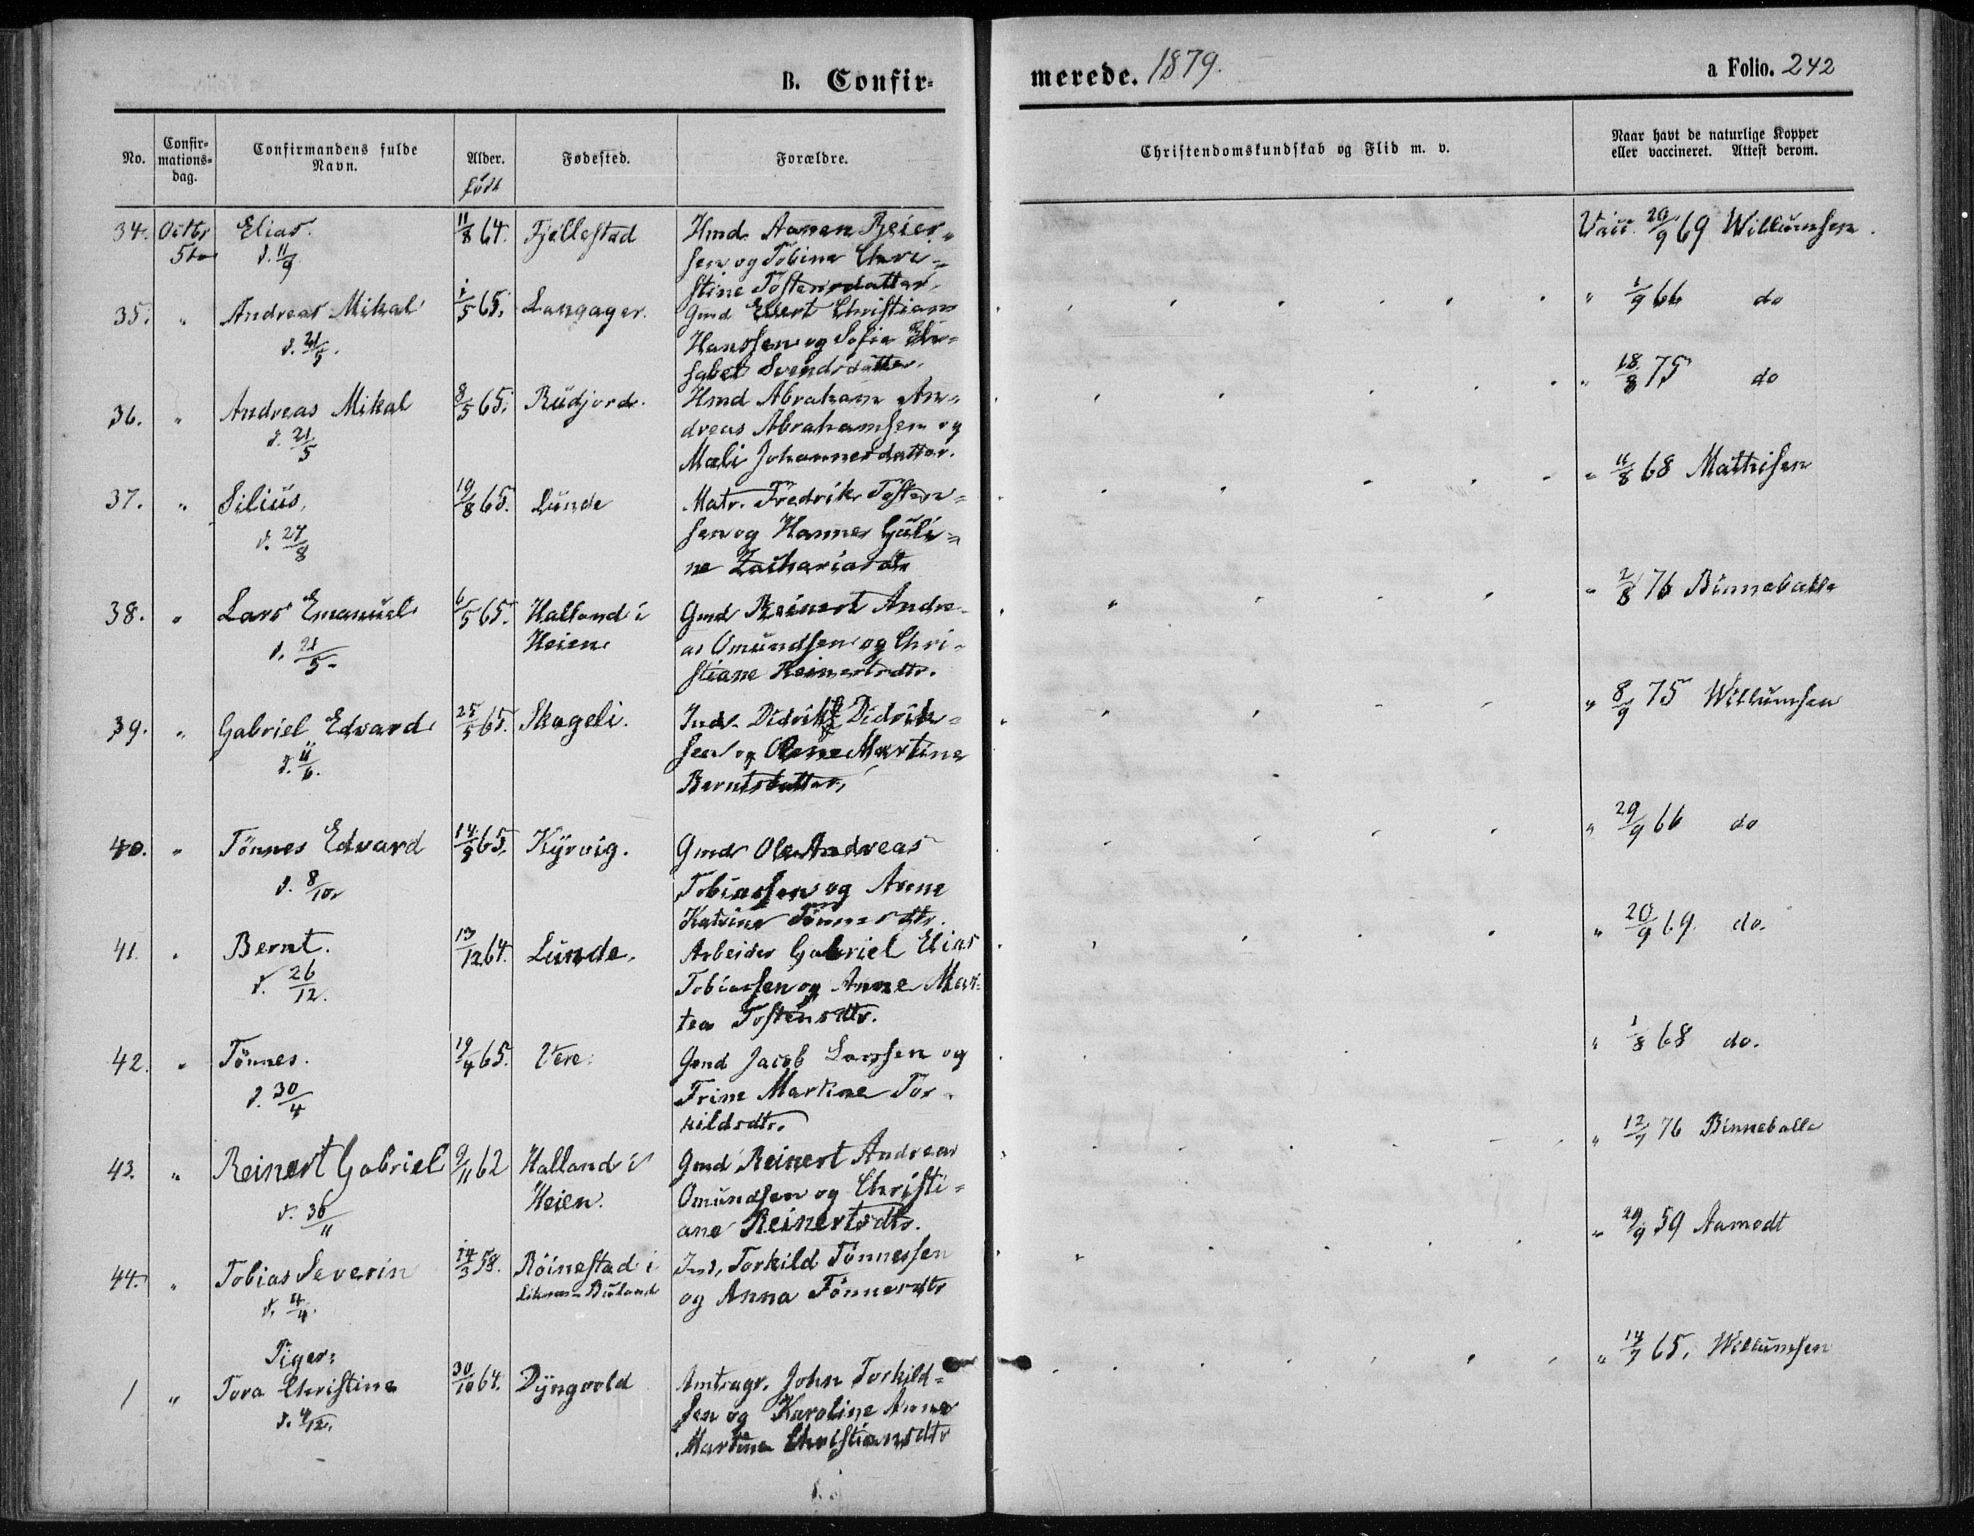 B. Confir-
merede. 1879.
a Folio. 242
No.
Confir-
mations-
dag.
Confirmandens fulde
Navn.
Alder.
født
Fødested.
Forældre.
Christendomskundskab og Flid m. v.
Naar havt de naturlige Kopper
eller vaccineret. Attest derom.
34. Octbr Elias. 11/8 64. Fjellestad Hmd. Aanen Reier- Vacc. 20/9 69 Willumsen.
5te d. 11/9 sen og Tobine Chri-
stine Tostensdatter.
35. " Andreas Mikal 1/5 65. Langager. Gmd Evert Christian " 1/9 66 do
d. 21/5. Hanssen og Sofie Eli-
sabet Svendsdatter.
36. " Andreas Mikal 8/5 65. Rudjord. Hmd Abraham An- " 18/8 75 do
d. 21/5 dreas Abrahamsen og
Mali Johannesdatter.
37. " Silius, 19/8 65. Lunde Matr. Fredrik Tosten- " 11/8 68 Mathisen
d. 27/8 sen og Hanne Guli-
ne Zachariasdtr
38. " Lars Emanuel 6/5 65. Halland i Gmd Reinert Andre- " 2/8 76 Binneballe
d. 21/5 Heien as Omundsen og Chri-
stiane Reinertsdtr.
39. " Gabriel Edvard 25/5 65. Skageli. Inds. Didrik Didrik- " 8/9 75 Willumsen
d. 11/6. sen og Olene Martine
Berntsdatter,
40. " Tönnes Edvard 14/9 65. Kyrvig. Gmd Ole Andreas " 29/9 66 do
d. 8/10 Tobiassen og Anne
Katrine Tönnesdtr.
41. " Bernt. 13/12 64. Lunde. Arbeider Gabriel Elias " 20/9 69. do.
d. 26/12. Tobiassen og Anne Mar-
tea Tostensdtr.
42. " Tönnes. 19/4 65. Vere. Gmd Jacob Larssen og " 1/8 68 do.
d. 30/4 Trine Martine Tor-
kildsdtr.
43. " Reinert Gabriel 9/11 62 Halland i Gmd Reinert Andreas " 12/7 76 Binneballe
d. 30/11 Heien. Omundsen og Christi-
ane Reinertsdtr.
44. " Tobias Severin 14/3 58. Röinestad i Ind. Torkild Tönnessen " 29/9 59 Aamodt
d. 4/4. og Anna Tönnesdtr
Piger:
1 " Tora Christine 30/10 64. Dyngvold Amtsgr. John Torkild- " 14/7 65. Willumsen
d. 4/12. sen og Karoline Anne
Martine Christiansdtr